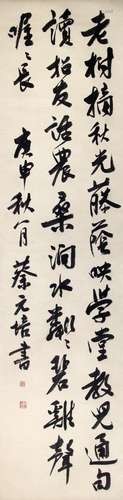 老树摘秋光藤荫哄学堂教儿通句
读招友话农桑涧水粼粼碧鸡声
喔喔长 庚申秋月 蔡元培书